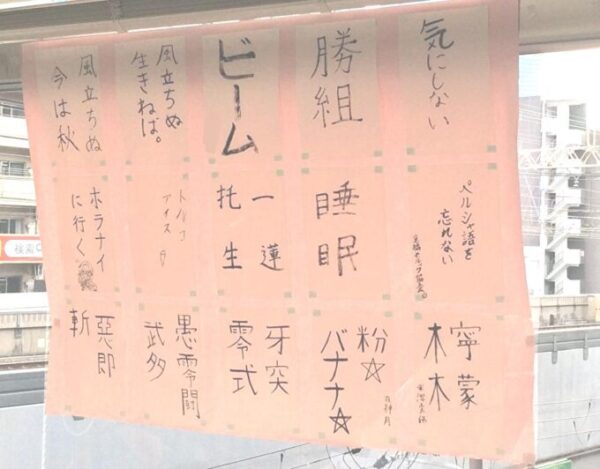 気にしない
勝組
ビーム
風立ちぬ
生きねば。
風立ちぬ
今は秋
ペルシャ語を
忘れない
睡眠
一蓮
托生
トルコ
アイス
ホラナイ
に行く
檸檬
粉☆
バナナ☆
牙突
零式
愚零闘
武多
惡即
斬
検索